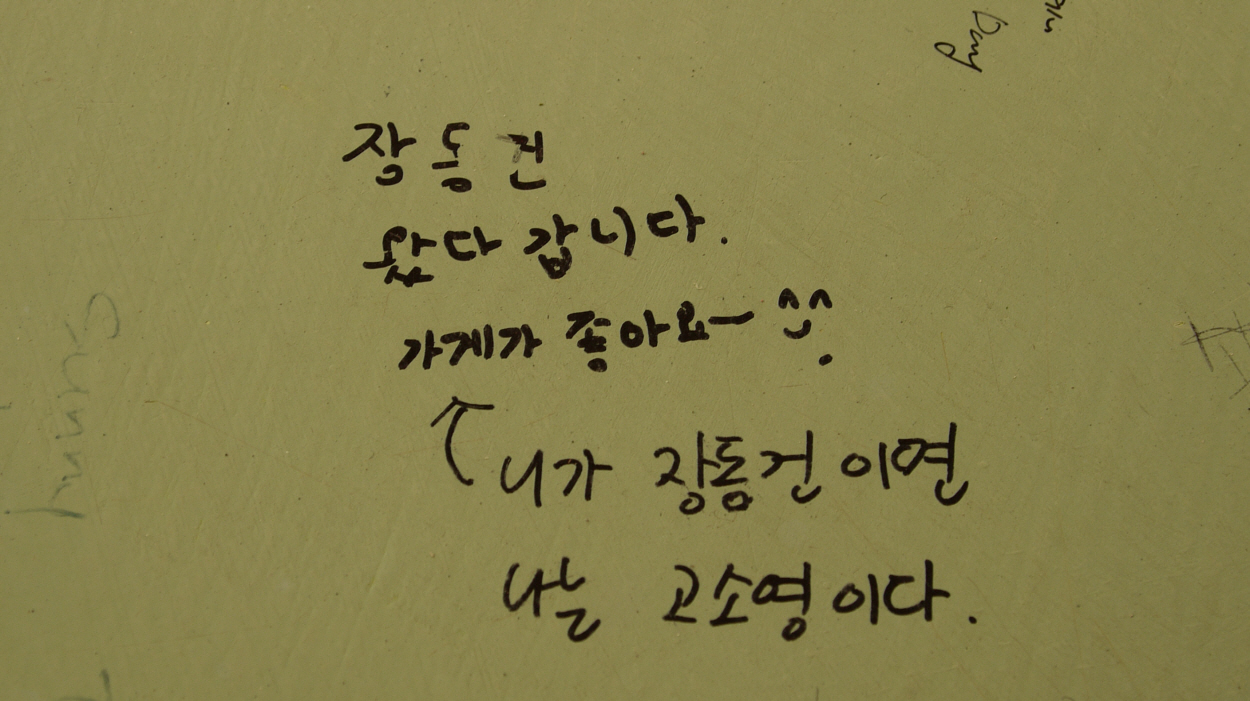 장동건
왔다 갑니다.
가게가 좋아요ㅡ ^^
니가 장동건이면
나는 고소영이다.